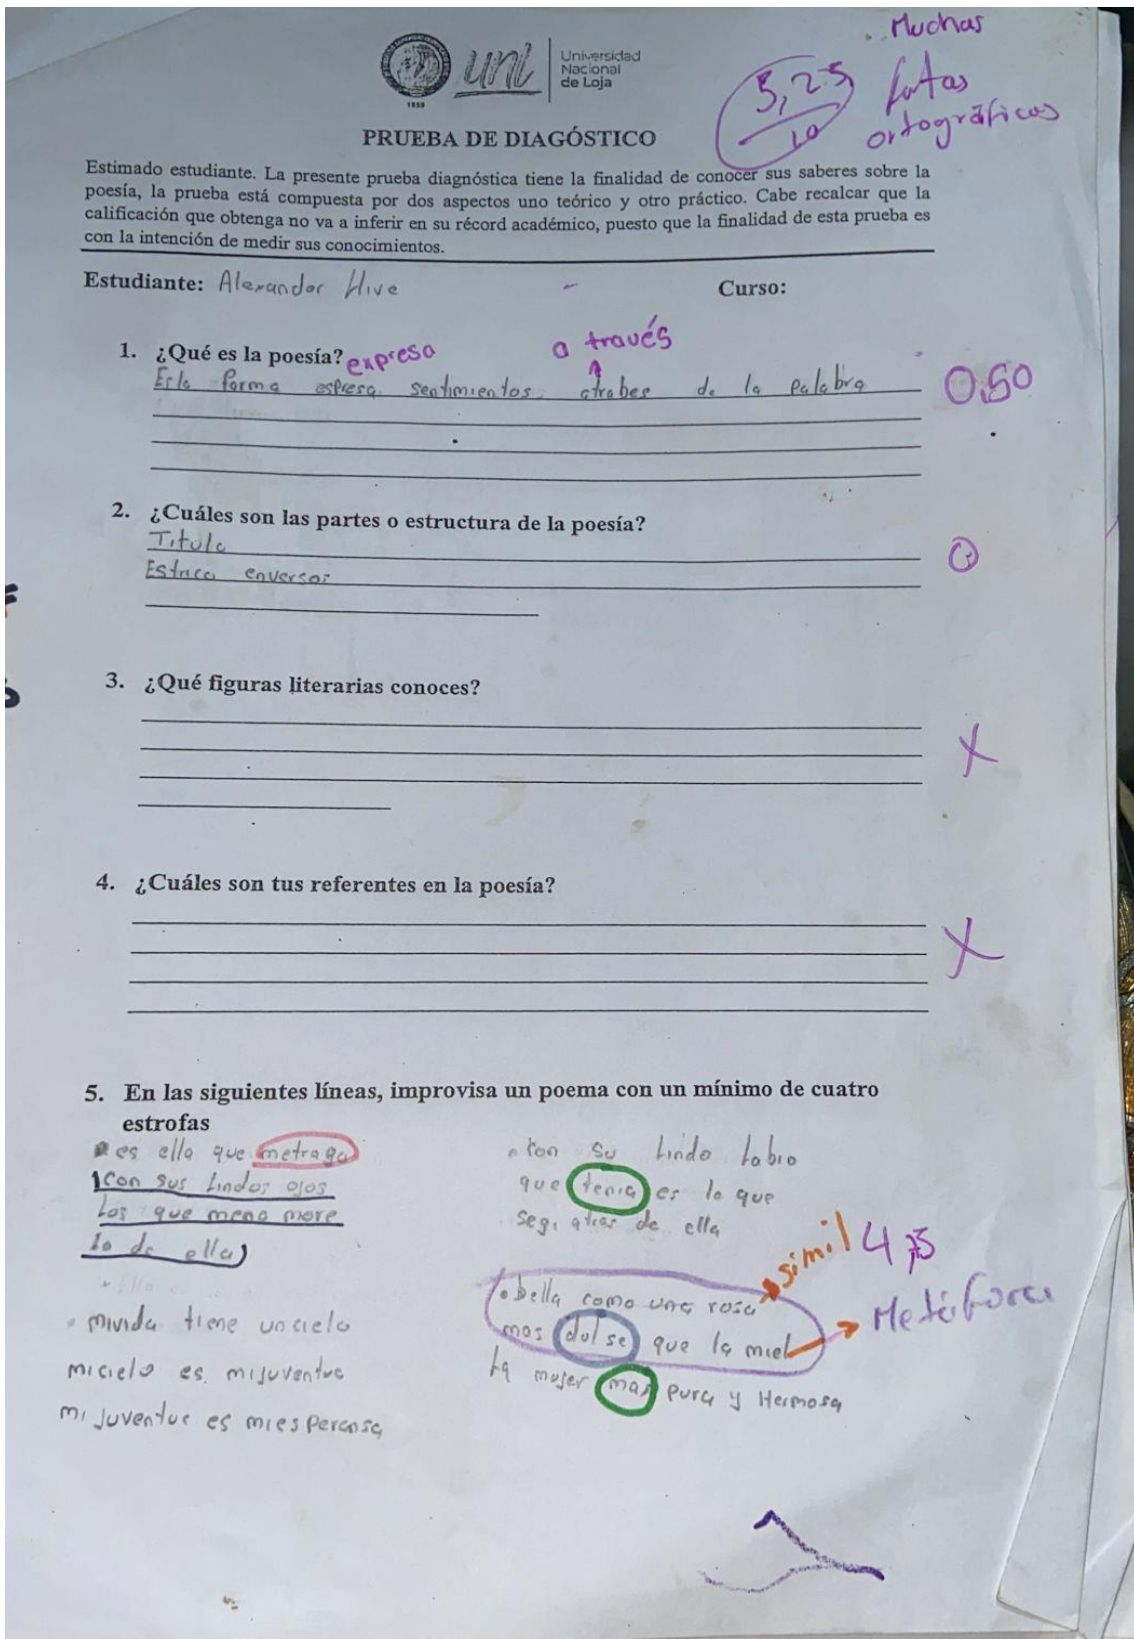 Muchas
fatas
ortográficas
5,25
10
1859
unl
Universidad
Nacional
de Loja
PRUEBA DE DIAGÓSTICO
Estimado estudiante. La presente prueba diagnóstica tiene la finalidad de conocer sus saberes sobre la
poesía, la prueba está compuesta por dos aspectos uno teórico y otro práctico. Cabe recalcar que la
calificación que obtenga no va a inferir en su récord académico, puesto que la finalidad de esta prueba es
con la intención de medir sus conocimientos.
Estudiante: Alexandor
Curso:
1. ¿Qué es la poesía? expresa
a través
forma espresa sentimientos atrabes de la palabra
0,50
2. ¿Cuáles son las partes o estructura de la poesía?
Titulo
enversos
3. ¿Qué figuras literarias conoces?
X
4. ¿Cuáles son tus referentes en la poesía?
X
5. En las siguientes líneas, improvisa un poema con un mínimo de cuatro
estrofas
es ella que metraga
con sus Lindos ojos
Los que meno more
lo de ella
mivida tiene uncielo
micielo es mijuventue
mi juventue es miesperansa
con su Lindo Labio
que tenia es lo que
segi atras de ella
simil 4,75
bella como una rosa
mas dulse que la miel
Metáfora
La mujer mas pura y Hermosa